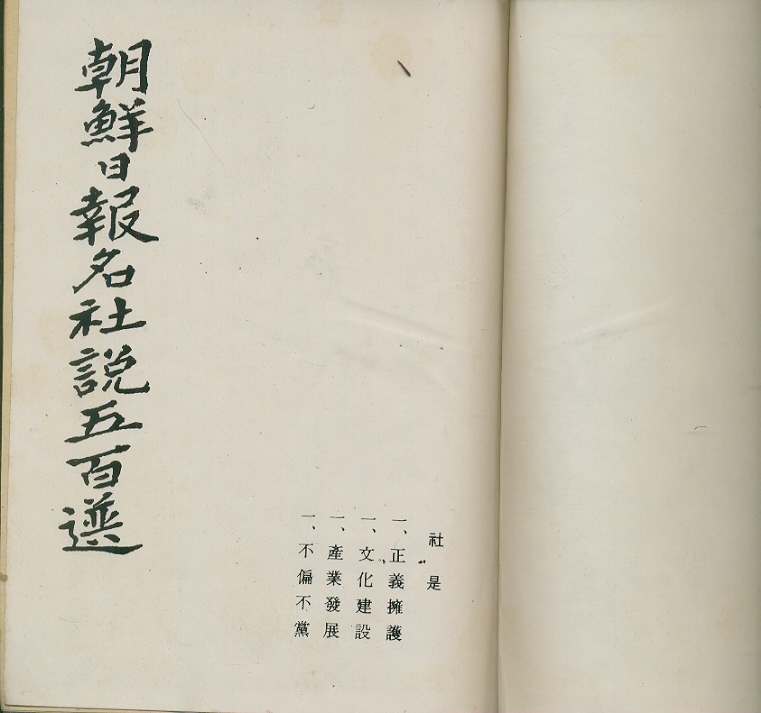 社是
一、正義擁護
一、文化建設
一、產業發展
一、不偏不黨
朝鮮日報名社説五百選